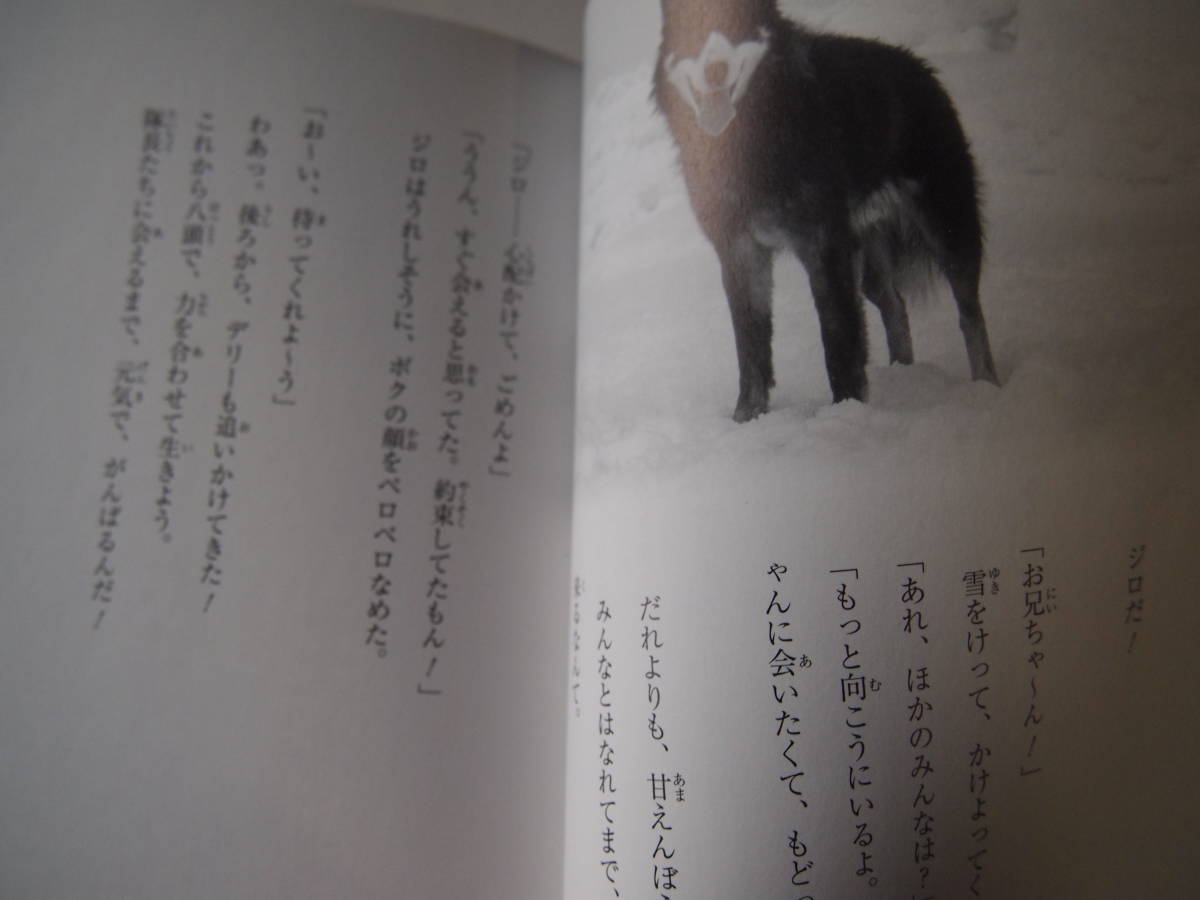 ジロだ！
「お兄ちゃ〜ん！」
雪をけって、かけよってく
「あれ、ほかのみんなは？
「もっと向こうにいるよ。
ゃんに会いたくて、もどっ
だれよりも、甘えんぼう
みんなとはなれてまで、
来るなんて。
「ジロ――心配かけて、ごめんよ」
「ううん、すぐ会えると思ってた。約束してたもん！」
ジロはうれしそうに、ボクの顔をペロペロなめた。
「お〜い、待ってくれよ〜う」
わあっ。後ろから、デリーも追いかけてきた！
これから八頭で、力を合わせて生きよう。
隊長たちに会えるまで、元気で、がんばるんだ！